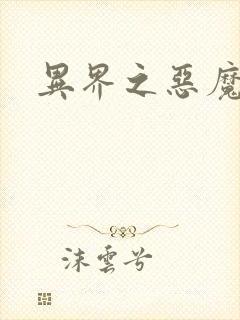 異界之惡魔
沫雲兮